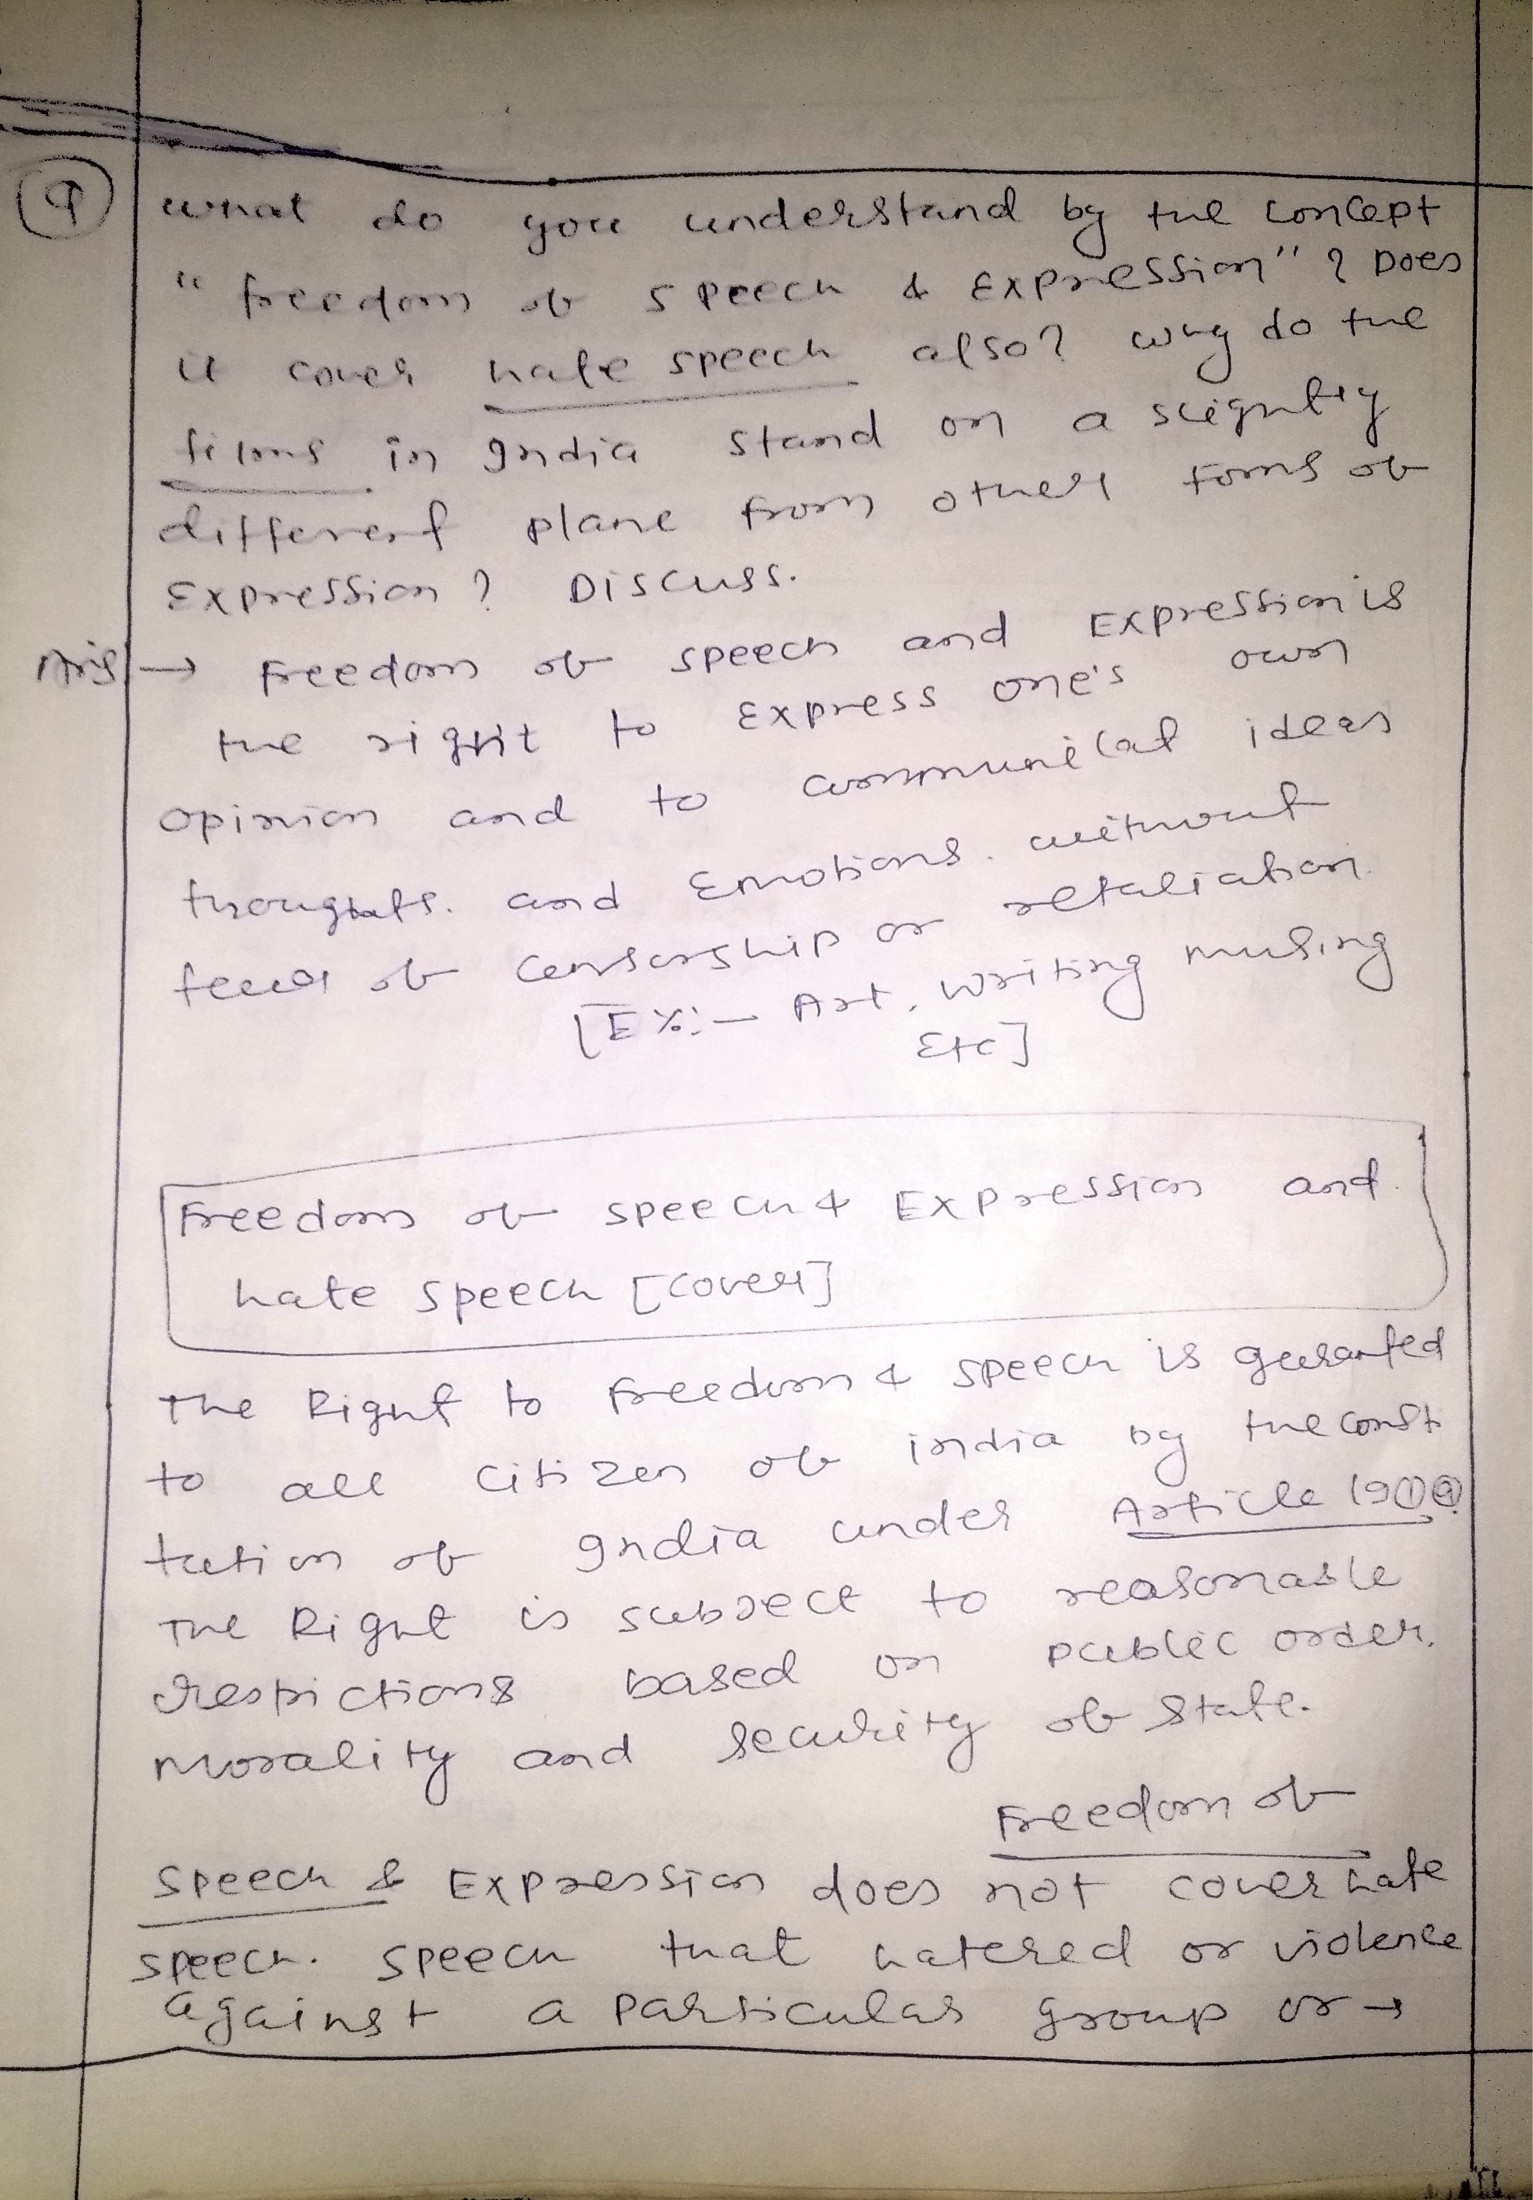 9
what do you understand by the concept
"freedom of speech & Expression"? Does
it cover hate speech also? why do the
films in India stand on a slightly
different plane from other forms of
Expression? Discuss.
Ans → Freedom of speech and Expression is
the right to Express one's own
opinion and to communicat ideas
thoughts. and Emotions. without
fear of censorship or retaliation.
[EX:- Art, writing musing
Etc]
Freedom of speech & Expression and
hate speech [cover]
The Right to freedom & speech is guranted
to all citizen of india by the consti
tution of India under Article 19(1)(a)
The Right is subject to reasonable
restrictions based on public order.
morality and security of State.
Freedom of
Speech & Expression does not cover hate
speech. speech that hatered or violence
against a particular group or →